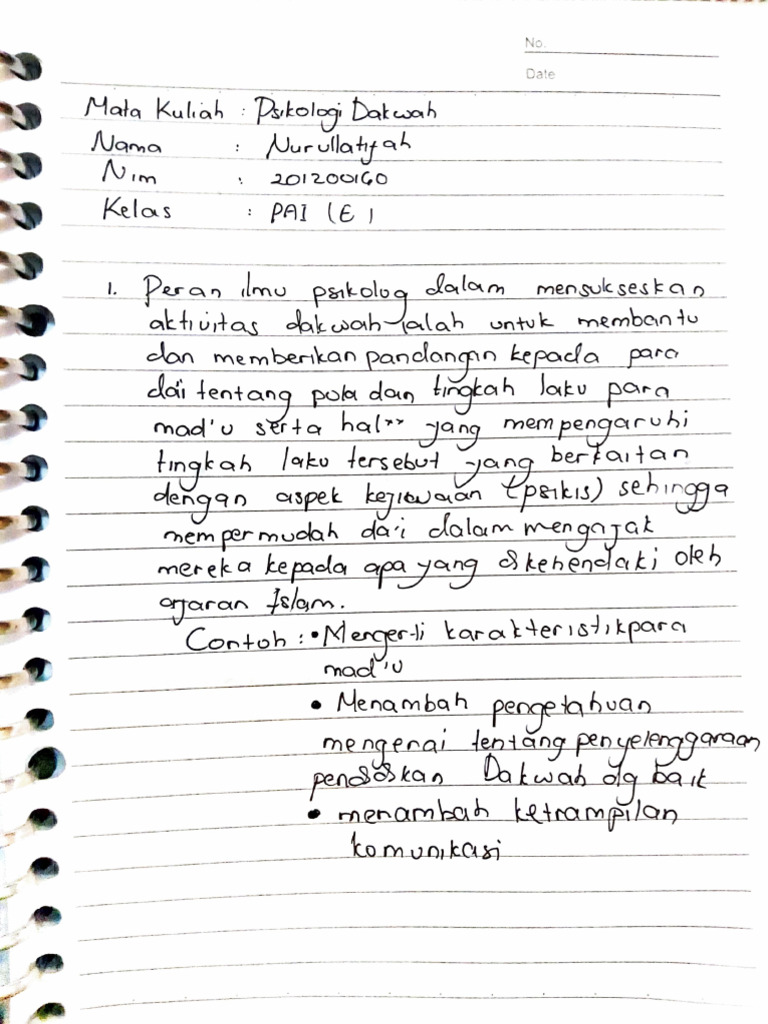 No.
Date
Mata Kuliah : Psikologi Dakwah
Nama : Nurullatifah
Nim : 201200160
Kelas : PAI (E)
1. Peran ilmu psikolog dalam mensukseskan
aktivitas dakwah ialah untuk membantu
dan memberikan pandangan kepada para
da'i tentang pola dan tingkah laku para
mad'u serta hal" yang mempengaruhi
tingkah laku tersebut yang berkaitan
dengan aspek kejiwaan (psikis) sehingga
mempermudah da'i dalam mengajak
mereka kepada apa yang dikehendaki oleh
ajaran Islam.
Contoh : • Mengerti karakteristik para
mad'u
• Menambah pengetahuan
mengenai tentang penyelenggaraan
pendidikan Dakwah dg baik
• menambah ketrampilan
komunikasi